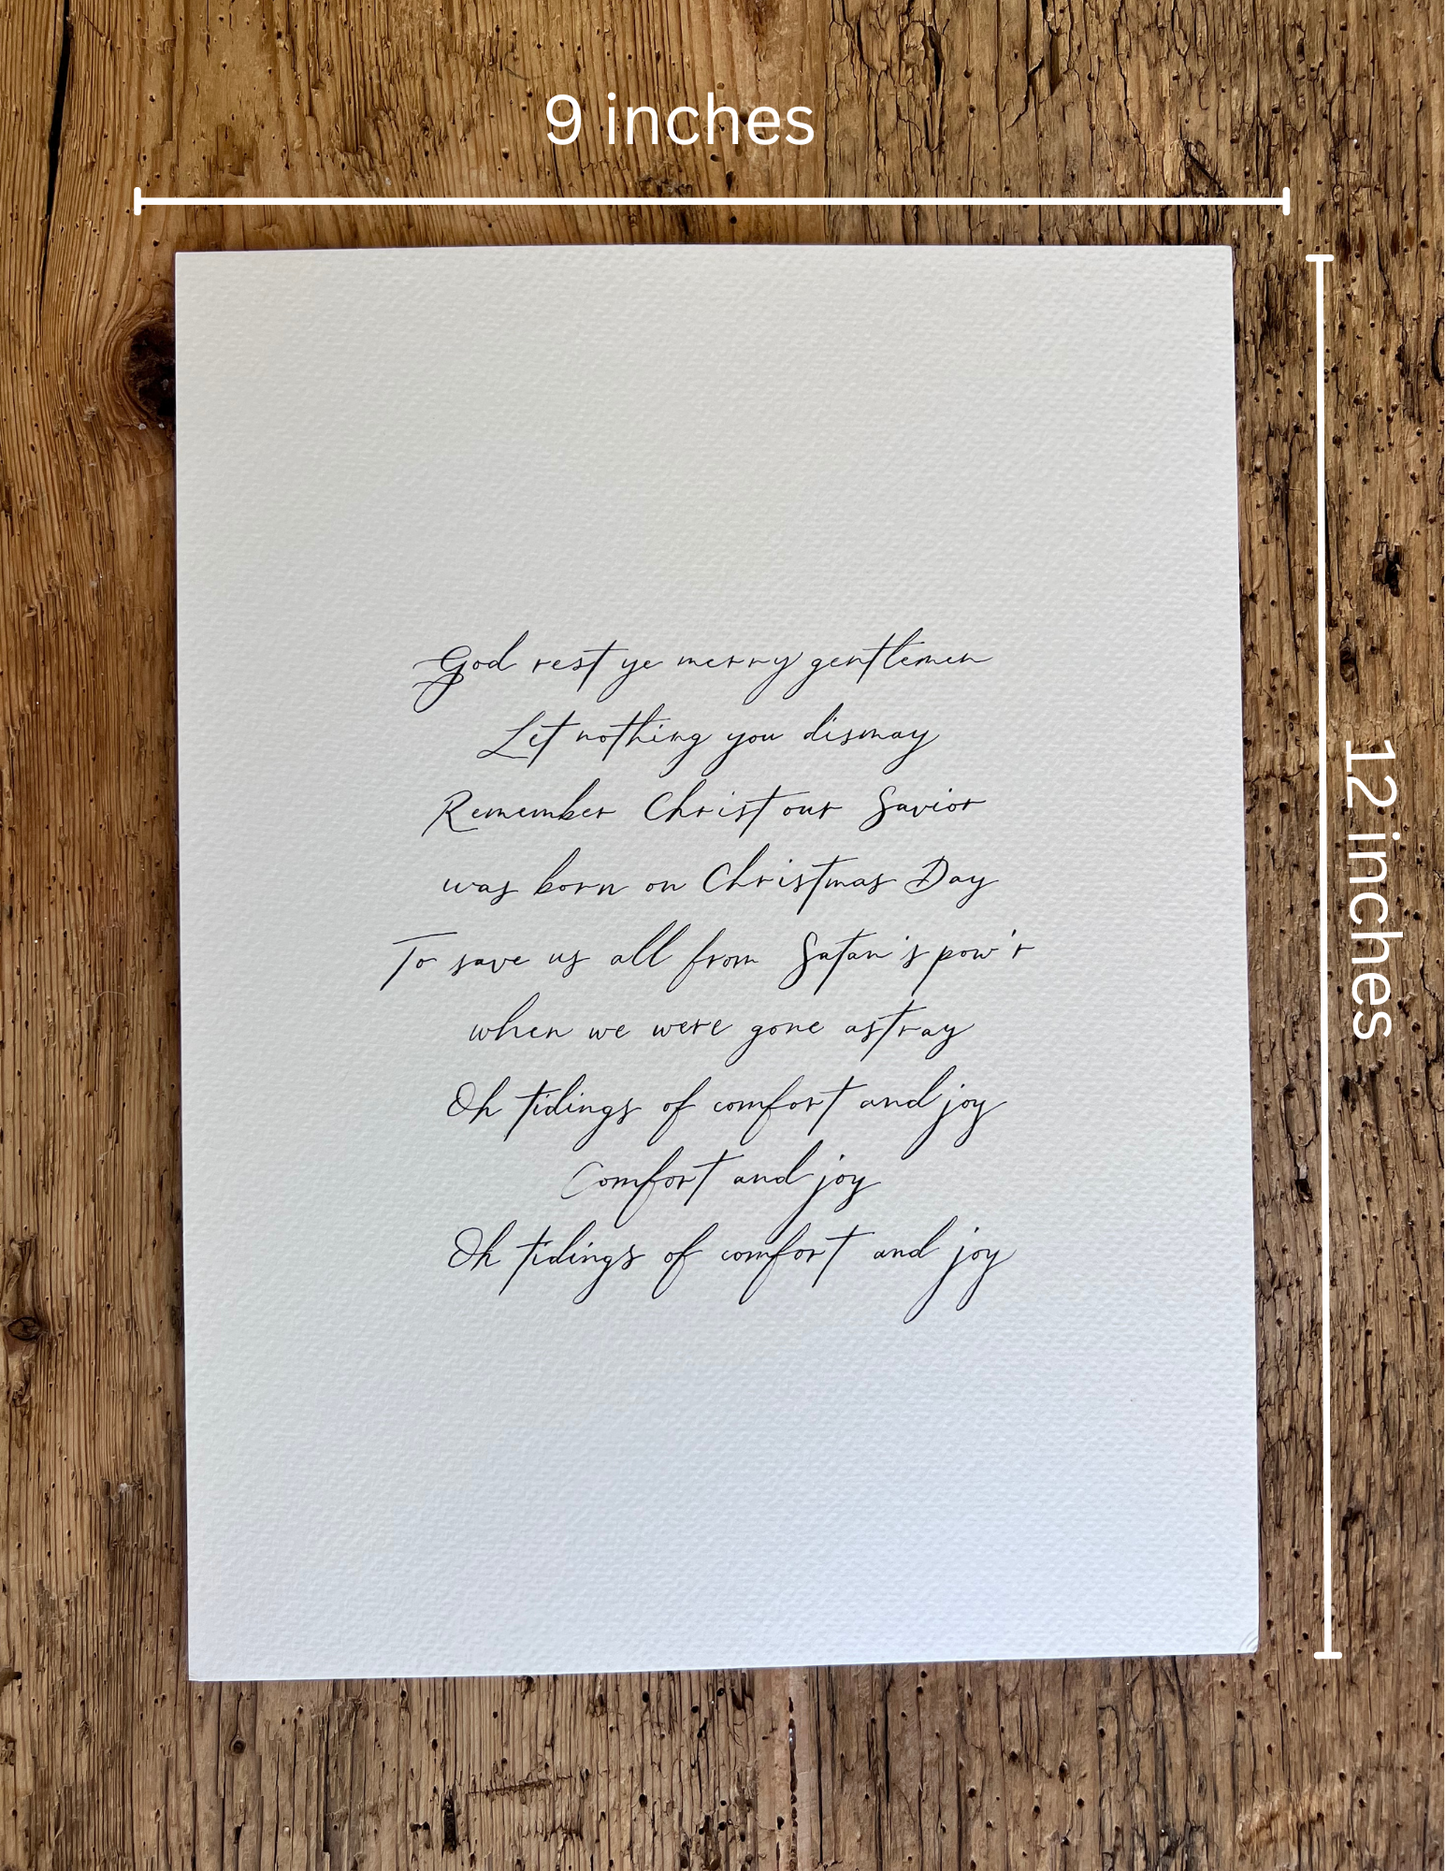 9 inches
12 inches
God rest ye merry gentlemen
Let nothing you dismay
Remember Christ our Savior
was born on Christmas Day
To save us all from Satan's pow'r
when we were gone astray
Oh tidings of comfort and joy
Comfort and joy
Oh tidings of comfort and joy